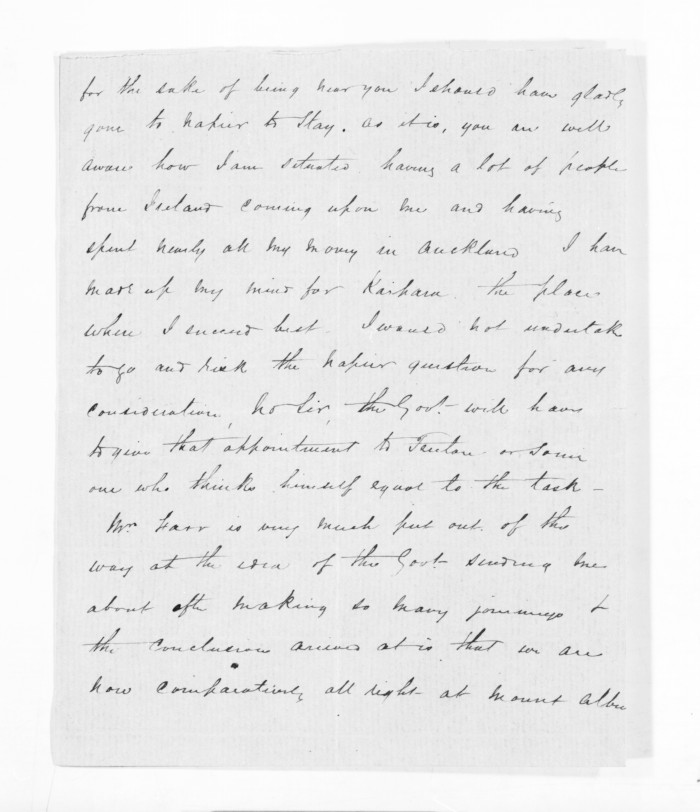 for the sake of being near you I should have gladly
gone to Napier to stay. as it is, you are well
aware how I am situated having a lot of people
from Ireland coming upon me and having
spent nearly all my money in Auckland I have
made up my mind for Kaipara the place
where I succeed best. I would not undertake
to go and risk the Napier question for any
consideration, No Sir, the Govt. will have
to give that appointment to Fenton or some
one who thinks himself equal to the task –
Mrs. is very much put out of the
way at the idea of the Govt. sending me
about after making so many journeys &
the conclusion arrived at is that we are
now comparatively all right at Mount Albert